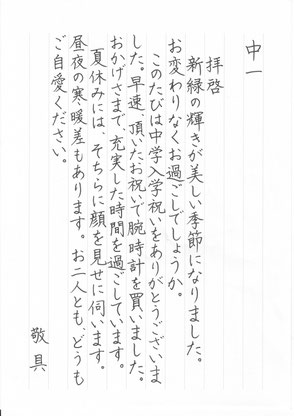 中一
拝啓
新緑の輝きが美しい季節になりました。
お変わりなくお過ごしでしょうか。
このたびは中学入学祝いをありがとうございま
した。早速、頂いたお祝いで腕時計を買いました。
おかげさまで、充実した時間を過ごしています。
夏休みには、そちらに顔を見せに伺います。
昼夜の寒暖差もあります。お二人とも、どうも
ご自愛ください。
敬具